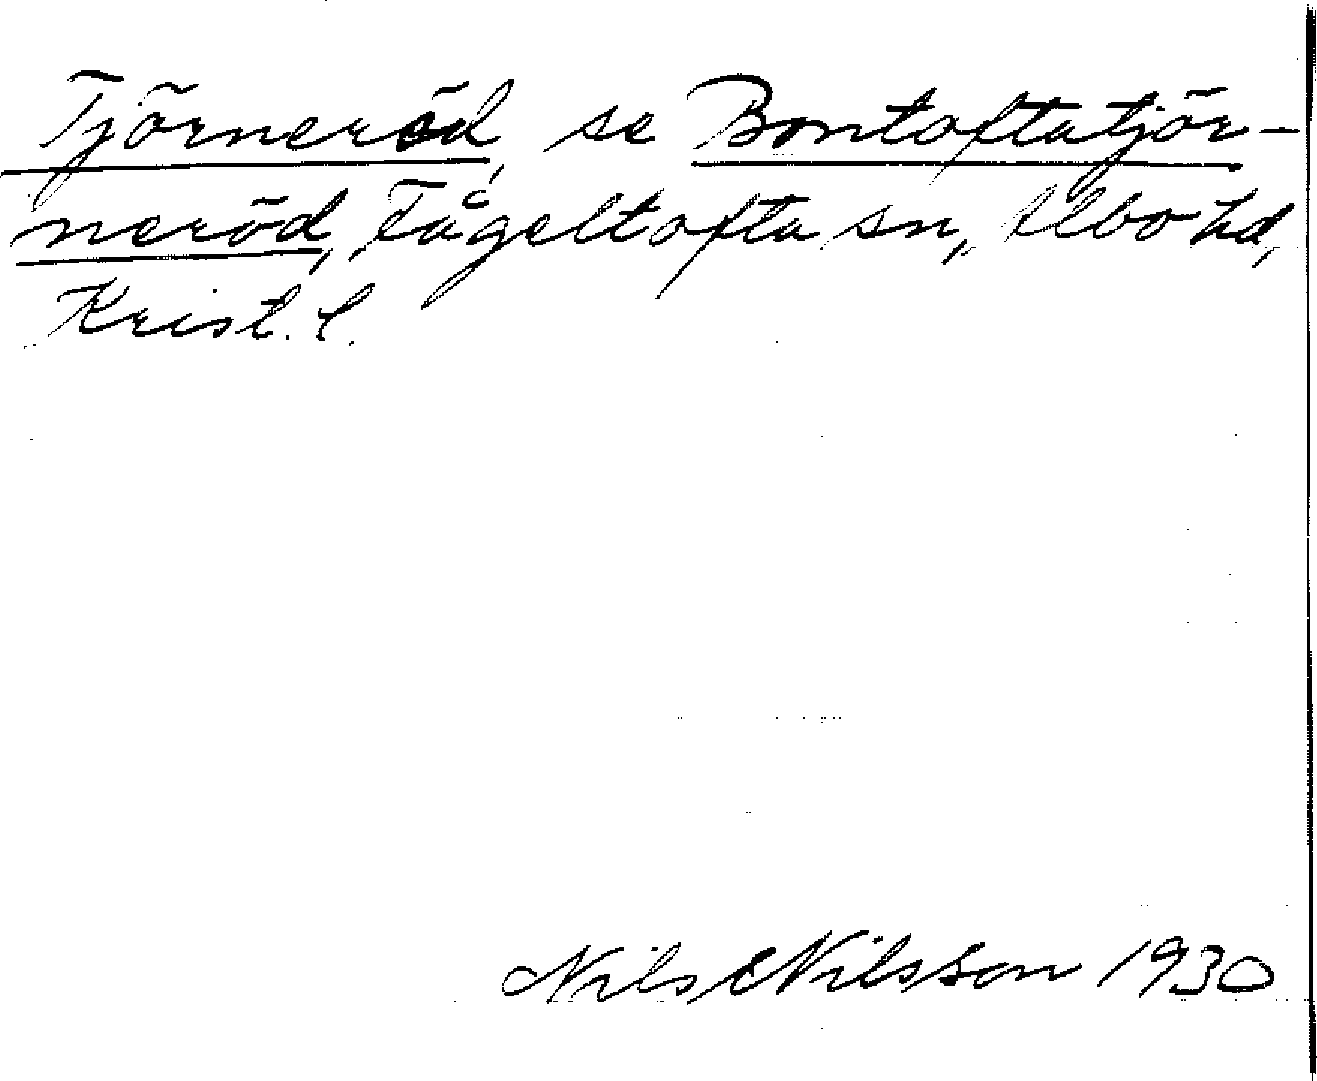 Tjörneröd, se Bontoftatjör-
neröd, Tågeltofta sn, Albo hd,
Krist. l.
Nils Nilsson 1930